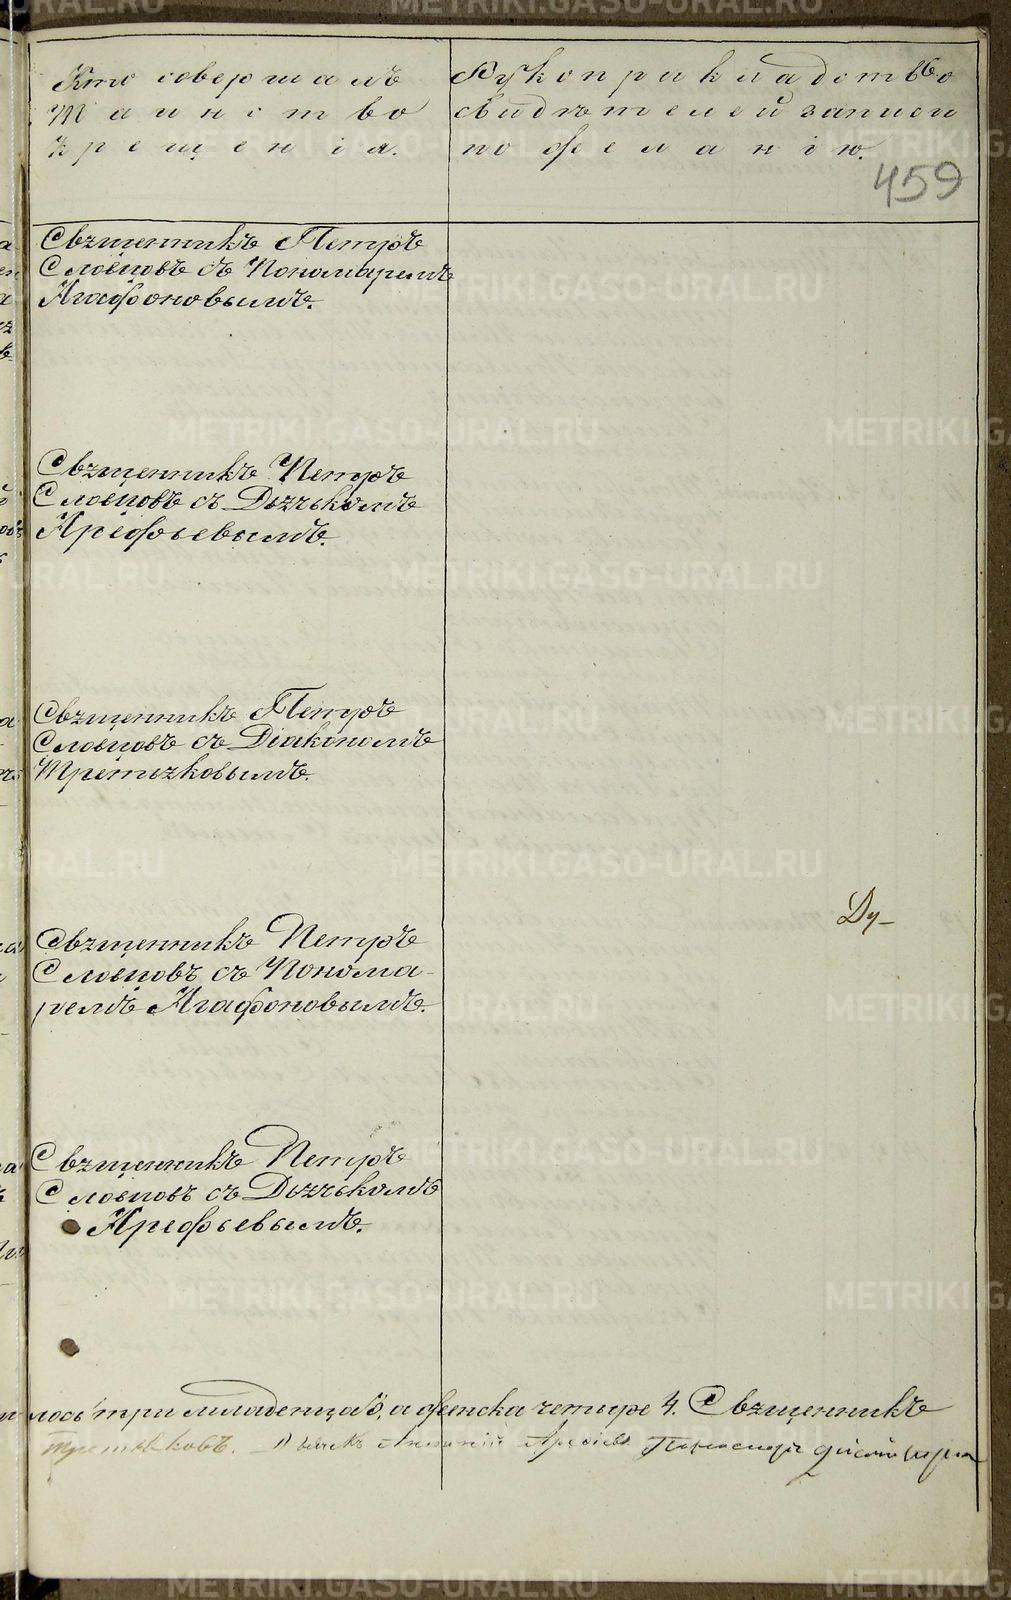 Кто совершалъ
Таинство
Крещенія.
Рукоприкладство
свидѣтелей записи
по желанію.
459
Священникъ Петръ
Словцовъ съ Пономаремъ
Агафоновымъ.
Священникъ Петръ
Словцовъ съ Дьячькомъ
Арефьевымъ.
Священникъ Петръ
Словцовъ съ Діакономъ
Третьяковымъ.
Ду-
Священникъ Петръ
Словцовъ съ Понома-
ремъ Агафоновымъ.
Священникъ Петръ
Словцовъ съ Дьячькомъ
Арефьевымъ.
лось три младенца 3, а женска четыре 4. Священникъ
Третьяковъ. Дьячекъ Арефьевъ Пономарь
METRIKI.GASO-URAL.RU